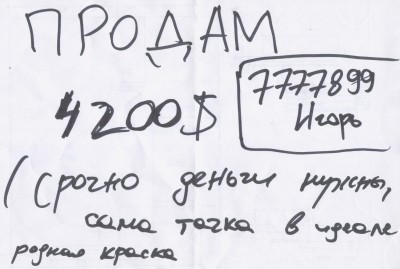 ПРОДАМ
4200$
7777899
Игорь
(Срочно деньги нужны,
сама тачка в идеале
родная краска